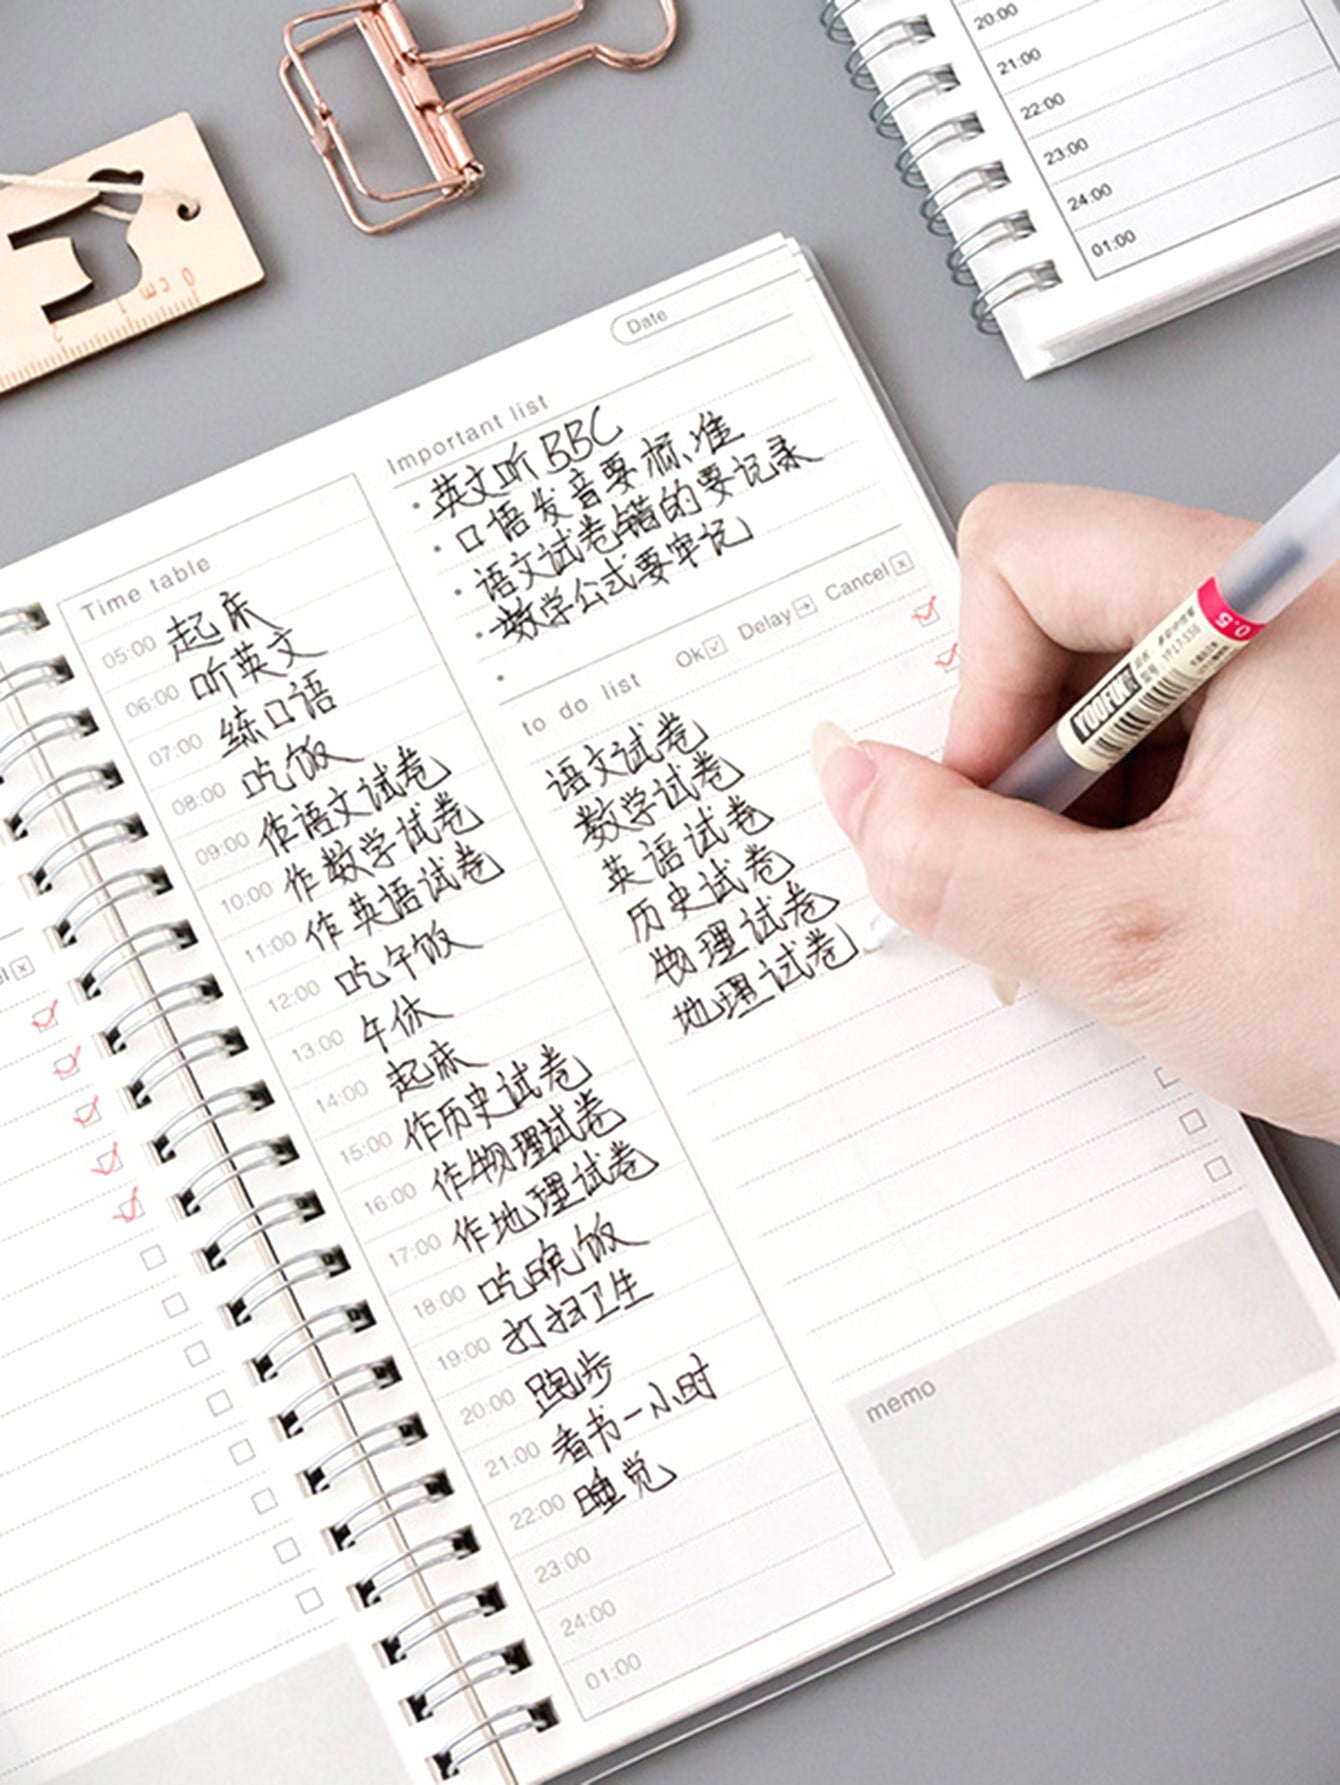 20:00
21:00
22:00
23:00
24:00
01:00
0 cm 1 2
Date
Important list
· 英文听BBC
· 口语发音要标准
· 语文试卷错的要记录
· 数学公式要牢记
·
Time table
05:00 起床
06:00 听英文
07:00 练口语
08:00 吃饭
09:00 作语文试卷
10:00 作数学试卷
11:00 作英语试卷
12:00 吃午饭
13:00 午休
14:00 起床
15:00 作历史试卷
16:00 作物理试卷
17:00 作地理试卷
18:00 吃晚饭
19:00 打扫卫生
20:00 跑步
21:00 看书一小时
22:00 睡觉
23:00
24:00
01:00
to do list Ok Delay Cancel
语文试卷
数学试卷
英语试卷
历史试卷
物理试卷
地理试卷
memo
0.5
YOOFUN
YP17-556